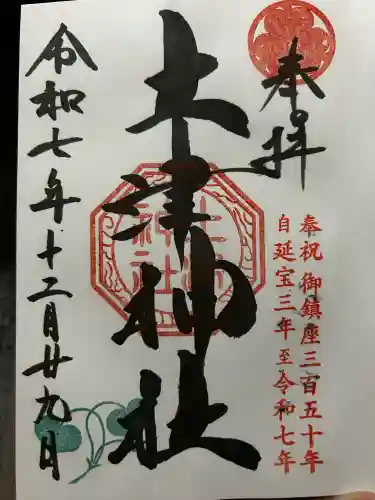 奉拝
奉祝 御鎮座三百五十年
自延宝三年至令和七年
土津神社
土津
神社
令和七年十二月廿九日